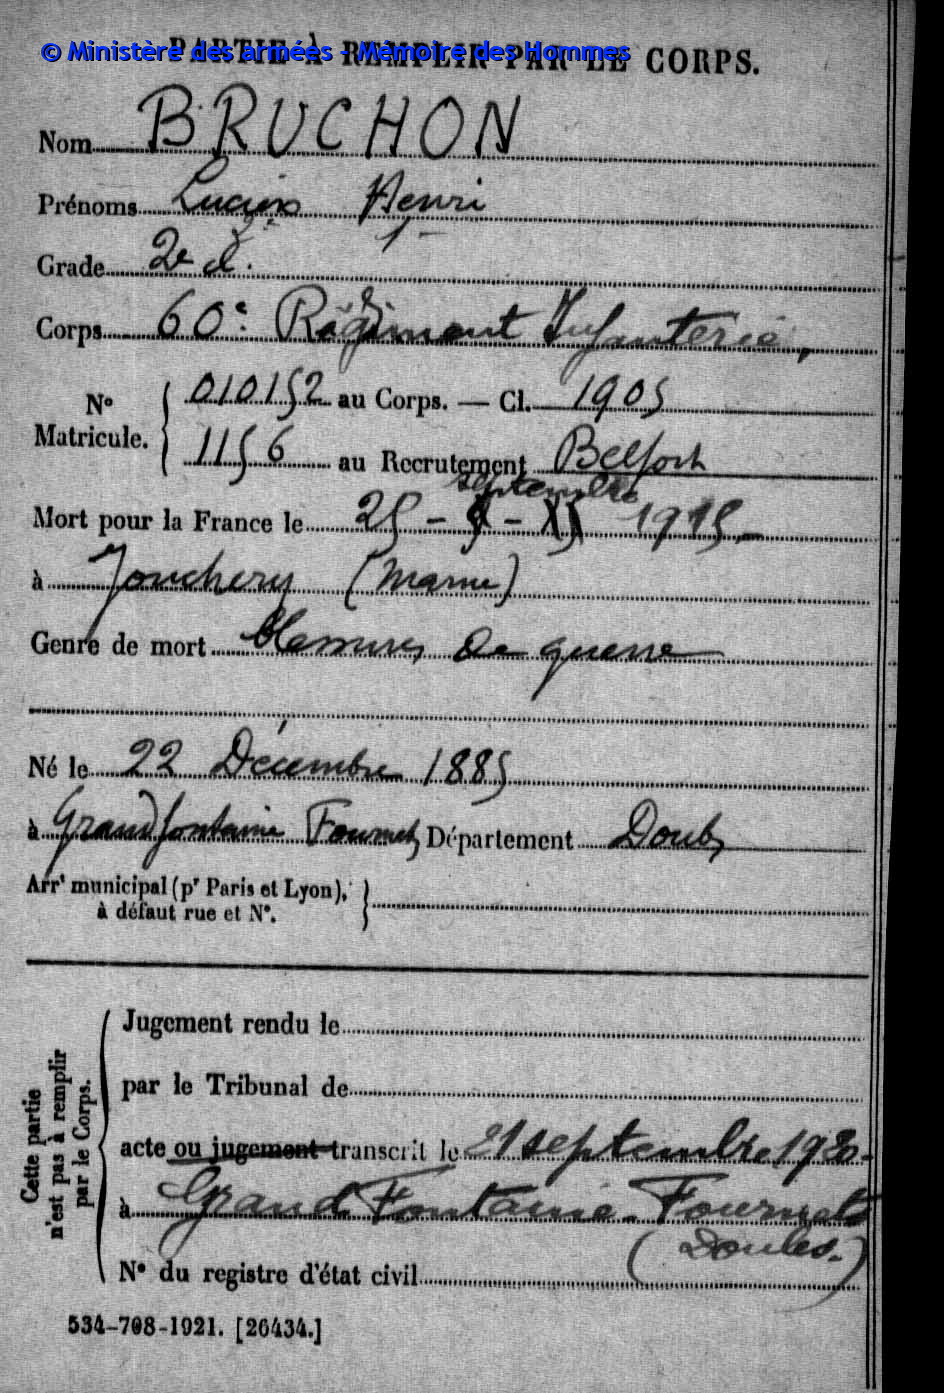 © Ministère des armées - Mémoire des Hommes
PARTIE À REMPLIR PAR LE CORPS.
Nom BRUCHON
Prénoms Lucien Henri
Grade 2e cl.
Corps 60e Régiment Infanterie,
No Matricule. 010152 au Corps. — Cl. 1905
1156 au Recrutement Belfort
septembre
Mort pour la France le 25 - 9 - XI 1915
à Jouchery (Marne)
Genre de mort blessures de guerre
Né le 22 Décembre 1885
à Grandfontaine Fournets Département Doubs
Arrt municipal (pr Paris et Lyon),
à défaut rue et No.
Cette partie
n'est pas à remplir
par le Corps.
Jugement rendu le
par le Tribunal de
acte ou jugement transcrit le 21 septembre 1920
à Grand'Fontaine-Fournets
(Doubs.)
No du registre d'état civil
534-708-1921. [26434.]